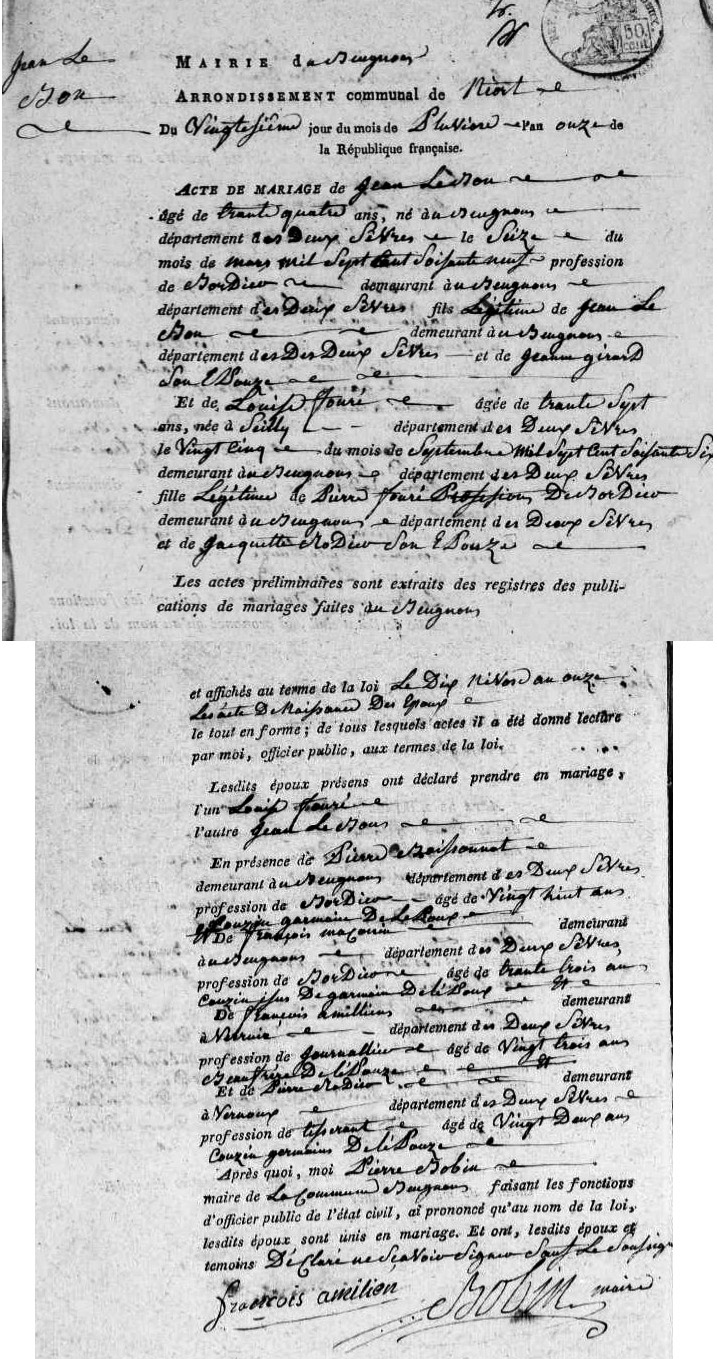 Jean Le
Bon
MAIRIE du Beugnon
ARRONDISSEMENT communal de Niort
Du Vingtesième jour du mois de Pluviose l'an onze de
la République française.
ACTE DE MARIAGE de Jean Le Bon
âgé de trante quatre ans, né au Beugnons
département des Deux Sèvres le Seize du
mois de mars mil Sept Cent Soisante neuf profession
de BorDieu demeurant au Beugnons
département des Deux Sèvres fils Légitime de Jean Le
Bon demeurant au Beugnons
département des Des Deux Sèvres et de Jeanne girard
Son EPouze
Et de Louise fouré âgée de trante Sept
ans, née à Seilly département des Deux Sèvres
le Vingt Cinq du mois de Septembre Mil Sept Cent Soisante Six
demeurant au Beugnons département des Deux Sèvres
fille Légitime de Pierre fouré Profession De BorDieu
demeurant au Beugnons département des Deux Sèvres
et de Jacquette RoDieu Son EPouze
Les actes préliminaires sont extraits des registres des publi-
cations de mariages faites au Beugnons
et affichés au terme de la loi Le Dix Nivose an onze
Les acte De Naissance Des Epoux
le tout en forme; de tous lesquels actes il a été donné lecture
par moi, officier public, aux termes de la loi.
Lesdits époux présens ont déclaré prendre en mariage,
l'un Louise fouré
l'autre Jean Le Bons
En présence de Pierre Boissonnot
demeurant au Beugnons département des Deux Sèvres
profession de BorDieu âgé de Vingt huit ans
Couzin germain De LePoux
Et De françois macouin demeurant
au Beugnons département des Deux Sèvres
profession de BorDieu âgé de trante trois ans
Couzin isus De germain De léPoux Et
De françois amilliens demeurant
à Verruie département des Deux Sèvres
profession de Journallieu âgé de Vingt trois ans
Beau frère De léPouze Et
Et de Pierre RoDieu demeurant
à Vernoux département des Deux Sèvres
profession de tisserant âgé de Vingt Deux ans
Couzin germains De léPouze
Après quoi, moi Pierre Bobin
maire de La Commune Beugnons faisant les fonctions
d'officier public de l'état civil, ai prononcé qu'au nom de la loi,
lesdits époux sont unis en mariage. Et ont, lesdits époux et
temoins DéClaré ne Scavoir Signer Sauf Le Sousigné
françois amilien Bobin maire